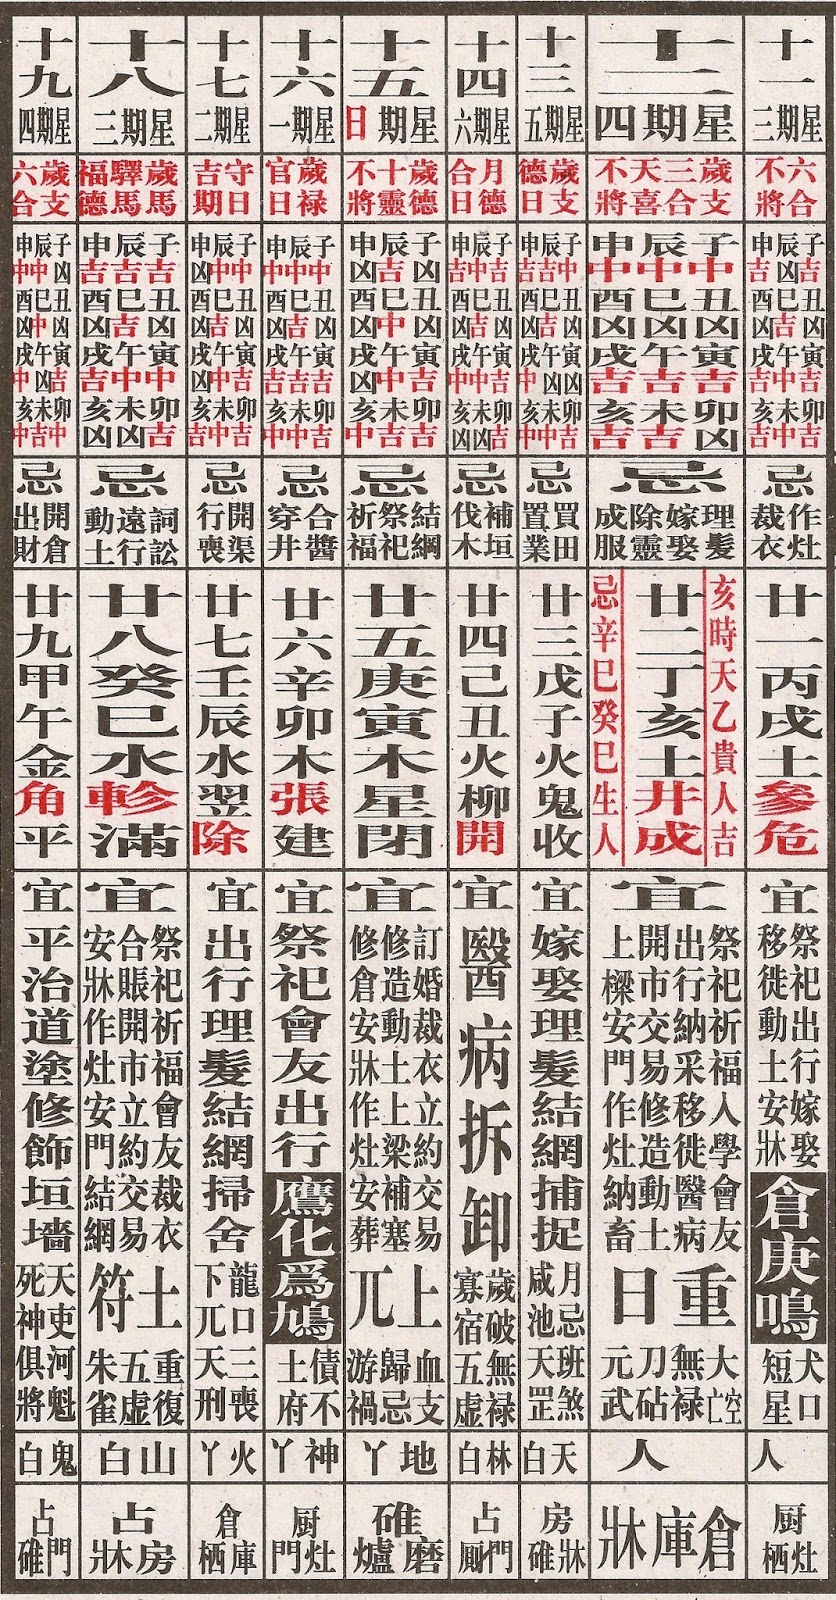 十一
星期三
六合
不將
子吉丑凶寅吉卯吉
辰凶巳凶午中未中
申吉酉凶戌中亥中
忌
作灶
裁衣
廿一丙戌土參危
宜
祭祀出行嫁娶
移徙動土安牀
倉庚鳴
犬口
短星
人
灶
厨栖
十二
星期四
歲支
三合
天喜
不將
子中丑凶寅吉卯凶
辰中巳凶午吉未吉
申中酉凶戌吉亥吉
忌
理髮
嫁娶
除靈
成服
亥時天乙貴人吉
廿二丁亥土井成
忌辛巳癸巳生人
宜
祭祀祈福入學會友
出行納采移徙醫病
開市交易修造動土
上樑安門作灶納畜
重日
大空亡
無禄
刀砧
元武
人
倉庫牀
十三
星期五
歲支
德
子中丑凶寅凶卯吉
辰吉巳吉午凶未中
申吉酉凶戌中亥中
忌
買田
置業
廿三戊子火鬼收
宜
嫁娶理髮結網捕捉
月忌
咸池
班煞
天罡
天白
房牀碓
十四
星期六
月德
合日
子中丑凶寅吉卯吉
辰中巳吉午中未凶
申吉酉凶戌中亥凶
忌
補垣
伐木
廿四己丑火柳開
宜
醫病拆卸
歲破
寡宿
無禄
五虛
林白
占門厠
十五
星期日
歲德
十靈
不將
子凶丑凶寅吉卯吉
辰吉巳中午中未吉
申凶酉凶戌凶亥中
忌
結網
祭祀
祈福
廿五庚寅木星閉
宜
訂婚裁衣立約交易
修造動土上梁補塞
修倉安牀作灶安葬
上兀
血支
歸忌
游禍
地丫
碓磨爐
十六
星期一
歲禄
官日
子中丑凶寅吉卯吉
辰中巳吉午吉未中
申中酉凶戌吉亥中
忌
合醬
穿井
廿六辛卯木張建
宜
祭祀會友出行
鷹化爲鳩
債不
土府
神丫
厨灶門
十七
星期二
守日
吉期
子中丑凶寅吉卯吉
辰中巳吉午中未中
申凶酉凶戌凶亥中
忌
開渠
行喪
廿七壬辰水翌除
宜
出行理髮結網掃舍
龍口
下兀
三喪
天刑
火丫
倉庫栖
十八
星期三
歲馬
驛馬
福德
子吉丑凶寅中卯吉
辰吉巳吉午中未凶
申吉酉凶戌吉亥凶
忌
詞訟
遠行
動土
廿八癸巳水軫滿
宜
祭祀祈福會友裁衣
合賬開市立約交易
安牀作灶安門結網
土符
重復
五虛
朱雀
山白
占房牀
十九
星期四
歲支
六合
子凶丑凶寅吉卯中
辰中巳中午凶未吉
申中酉凶戌中亥中
忌
開倉
出財
廿九甲午金角平
宜
平治道塗修飾垣墻
天吏
死神
河魁
俱將
鬼白
占門碓